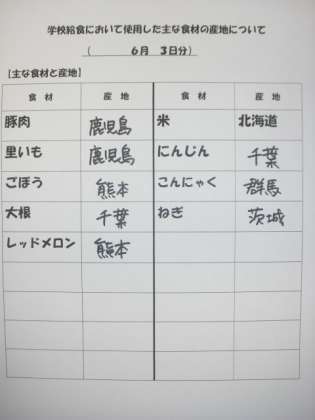 学校給食において使用した主な食材の産地について
（ 6月 3日分）
【主な食材と産地】
食 材 産 地 食 材 産 地
豚肉 鹿児島 米 北海道
里いも 鹿児島 にんじん 千葉
ごぼう 熊本 こんにゃく 群馬
大根 千葉 ねぎ 茨城
レッドメロン 熊本